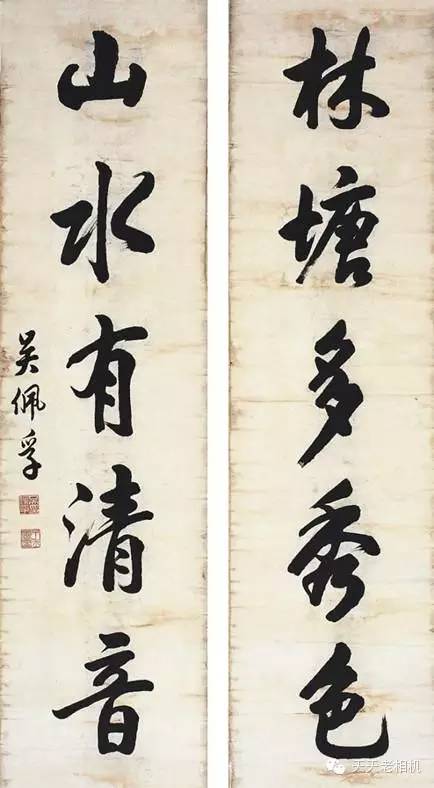 林塘多秀色
山水有清音
吴佩孚
天天老相机